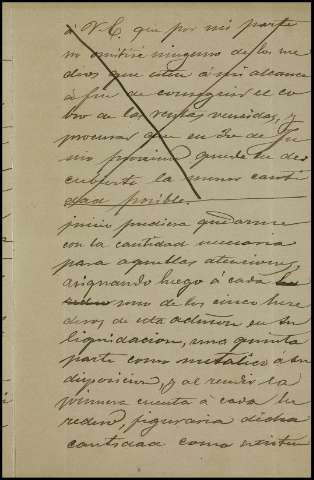 á V.E. que por mi parte
no omitiré ninguno de los me
dios que esten á mi alcance
á fin de conseguir el co
bro de las rentas vencidas, y
procurar que en 30 de Ju
nio proximo quede en des
cubierto la menor canti
dad posible.
juicio pudiera quedarme
con la cantidad necesaria
para aquellas atenciones,
asignando luego á cada
uno de los cinco here
deros de esta admon en su
liquidacion, una quinta
parte como metalico á su
disposicion, y al rendir la
primera cuenta á cada he
redero, figuraria dicha
cantidad como existen